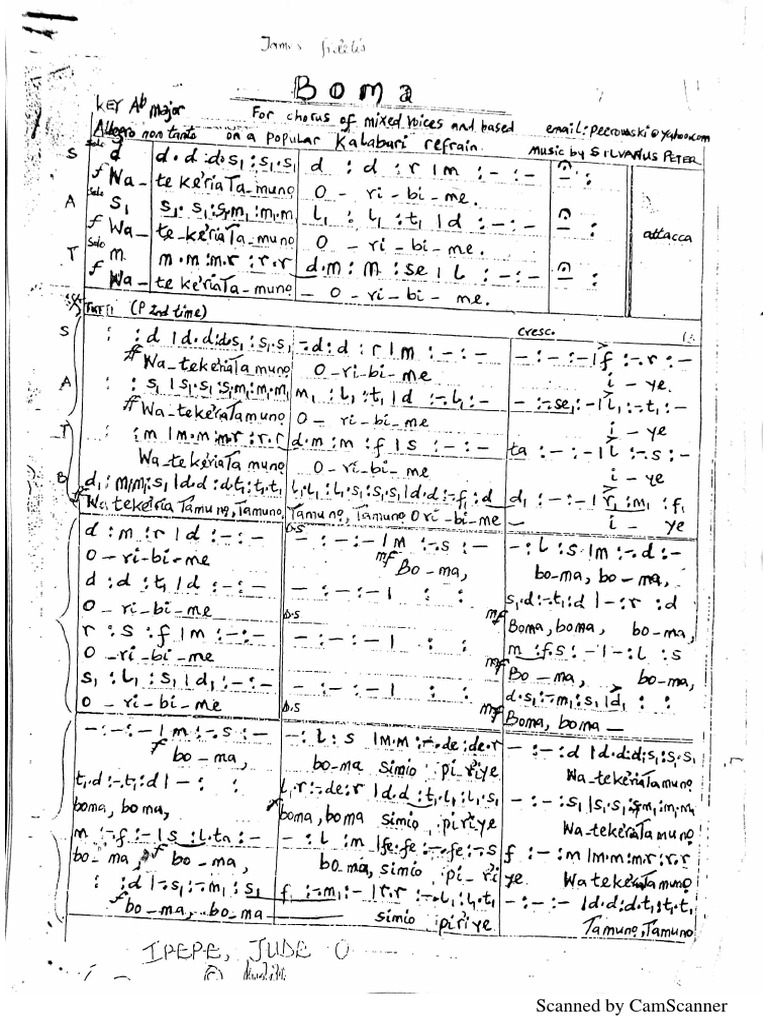 James Fidelis
Boma
KEY Ab major
For chorus of mixed voices and based
email: peerovaski@yahoo.com
Allegro non tanto
on a popular Kalabari refrain.
Music by SILVANUS PETER
S
Solo
d d.d:d.s₁:s₁.s₁ d : d : r | m : - : -
f Wa- te ke'riaTa-muno O - ri - bi - me.
A
Solo
s₁ s₁.s₁:s₁.m₁:m₁.m₁ l₁ : l₁ : t₁ | d : - : -
f Wa- te-ke'riaTa-muno O - ri - bi - me.
attacca
T
Solo
m m.m:m.r:r.r d.m : m : se | l : - : -
f Wa- te-ke'riaTa-muno - O - ri - bi - me.
TUTTI (P 2nd time)
cresc.
S
: : d | d.d:d.s₁:s₁.s₁ - d : d : r | m : - : - - : - : - | f : - r : -
ff Wa-tekeriaTamuno O-ri-bi-me i - ye.
A
: : s₁ | s₁.s₁:s₁.m₁:m₁.m₁ m₁ : l₁ : t₁ | d : - : l₁ : - - : - se₁ : - | l₁ : - t₁ : -
ff Wa-tekeriaTamuno O - ri-bi-me i - ye
T
: : m | m.m:m.r:r.r d.m : m : f | s : - : - ta : - : - | l : - s : -
Wa-te keriaTa muno O-ri-bi-me i - ye
B
d₁ : m₁.m₁:s₁ | d.d:d.t₁:t₁.t₁ l₁.l₁:l₁.s₁:s₁.s₁ | d.d : - f₁ : d d₁ : - : - | r₁ : m₁ : f₁
ff Wa tekeria Tamuno, Tamuno, Tamuno, Tamuno Ori-bi-me - i - ye
d : m : r | d : - : - D.S - : - : - | m : - s : - - : l : s | m : - d : -
O - ri-bi-me mf Bo-ma, bo-ma, bo-ma,
d : d : t₁ | d : - : - - : - : - | : : s₁.d : - t₁ : d | - : r : d
O - ri-bi-me D.S mf Boma, boma, bo-ma,
r : s : f | m : - : - - : - : - | : : m : f.s : - | - : l : s
O - ri-bi-me mf Bo-ma, bo-ma,
s₁ : l₁ : s₁ | d₁ : - : - - : - : - | : : d.s₁ : - m₁ : s₁ | d₁ : :
O - ri-bi-me D.S mf Boma, boma -
- : - : - | m : - s : - - : l : s | m.m : - de : de.r - : - : d | d.d:d.s₁:s₁.s₁
f bo-ma, bo-ma simio piriye Wa-tekeriaTamuno
t₁.d : - t₁ : d | - : : l₁.r : - de : r | d.d : t₁.l₁ : l₁.s₁ - : - : s₁ | s₁.s₁:s₁.m₁:m₁.m₁
boma, boma, boma, boma simio piriye Wa-tekeriaTamuno
m : - f : - | s : l.ta : - - : l : m | fe.fe : - fe : - s f : - : m | m.m:m.r:r.r
bo-ma, f bo-ma, bo-ma, simio pi-ri ye. Wa tekeriaTamuno
: : d | - s₁ : - m₁ : s₁ f₁ : - m₁ : - | r.r : - l₁ : l₁.t₁ - : - : - | d.d:d.t₁:t₁.t₁
f bo-ma, bo-ma simio piriye Tamuno, Tamuno
IPEPE, JUDE O
Scanned by CamScanner